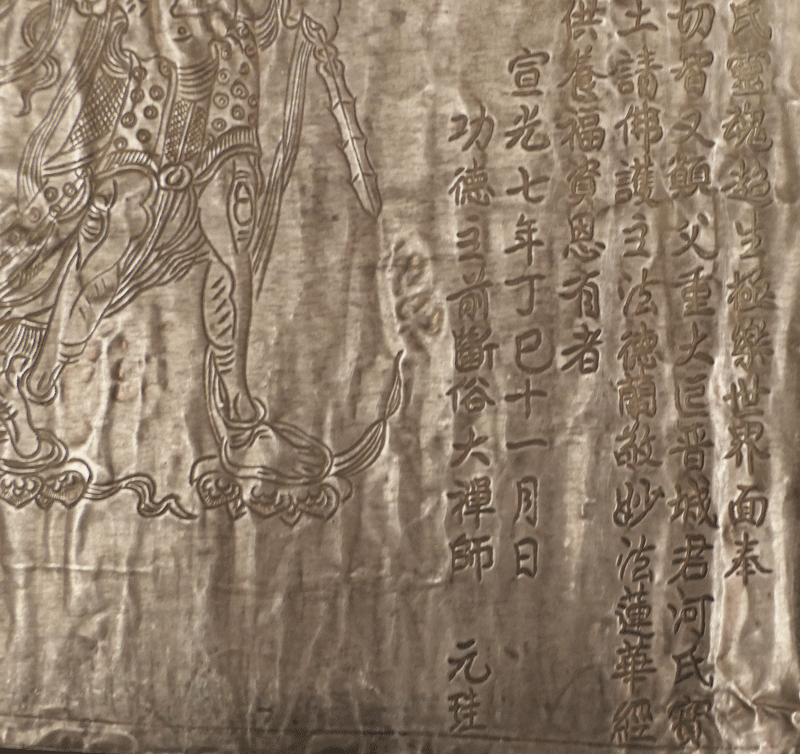 氏靈魂超生極樂世界面奉
切智又願父重大匡晋城君河氏寶
土請佛護主法德蘭敬妙法蓮華經
供養福資恩有者
宣光七年丁巳十一月日
功德主前斷俗大禪師 元珪